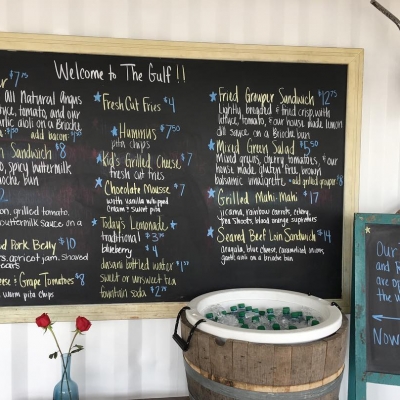 Welcome to The Gulf !!
$7.75
All Natural Angus
tomato, and our
garlic aioli on a Brioche
add bacon
Sandwich $8
o, spicy buttermilk
Brioche bun
onion, grilled tomato,
buttermilk sauce on a
Pork Belly $10
apricot jam, shaved
& Grape Tomatoes $8
warm pita chips
Fresh Cut Fries $4
Hummus $7.50
pita chips
Kid's Grilled Cheese $7
fresh cut fries
Chocolate Mousse $7
with vanilla whipped
cream & sweet pita
Today's Lemonade
traditional $3
blueberry $4
dasani bottled water $1.50
sweet or unsweet tea
fountain soda $2.75
Fried Grouper Sandwich $12.75
Lightly breaded & fried crisp, with
lettuce, tomato, & our house made lemon
dill sauce on a Brioche bun
Mixed Green Salad $5.50
Mixed greens, cherry tomatoes, & our
house made, gluten free, brown
balsamic vinaigrette - add grilled grouper $8
Grilled Mahi-Mahi $17
jicama, rainbow carrots, celery,
Pea Shoots, blood orange supremes
Seared Beef Loin Sandwich $14
arugula, blue cheese, caramelized onions,
garlic aioli on a brioche bun
Our
and
are
the
w
Now